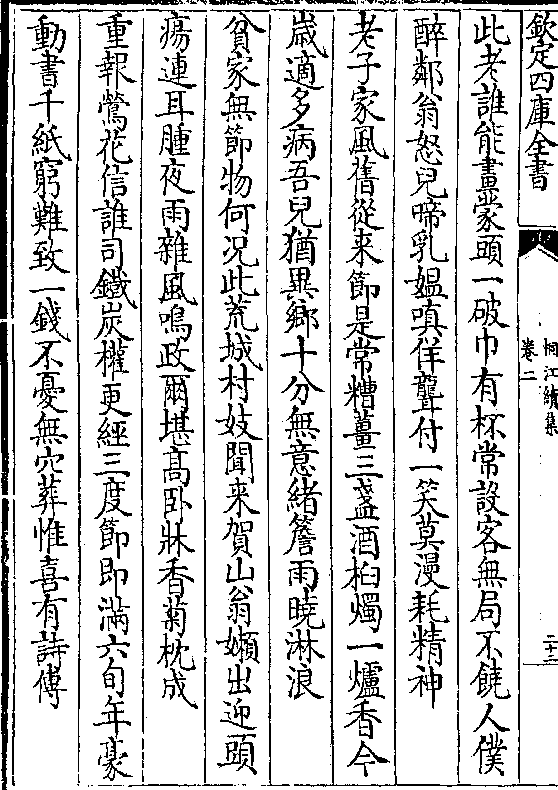 欽定四庫全書
桐江續集
卷二
二十三
此老誰能畫蒙頭一破巾有杯常設客無局不饒人僕
醉鄰翁怒兒啼乳媼嗔佯聾付一笑莫漫耗精神
老子家風舊從来節是常糟薑三盞酒柏燭一爐香今
歲適多病吾兒猶異鄉十分無意緒簷雨曉淋浪
貧家無節物何況此荒城村妓聞来賀山翁嬾出迎頭
瘍連耳腫夜雨雜風鳴政爾堪髙卧牀香菊枕成
重報鶯花信誰司鐵炭權更經三度節即滿六旬年豪
動書千紙窮難致一錢不憂無穴葬惟喜有詩傳